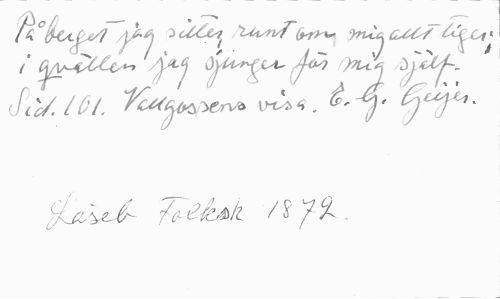 På berget jag sitter, runt om mig allt tiger;
i qvällen jag sjunger för mig sjelf.
Sid. 101. Vallgossens visa. E. G. Geijer.
Läseb Folksk 1872.